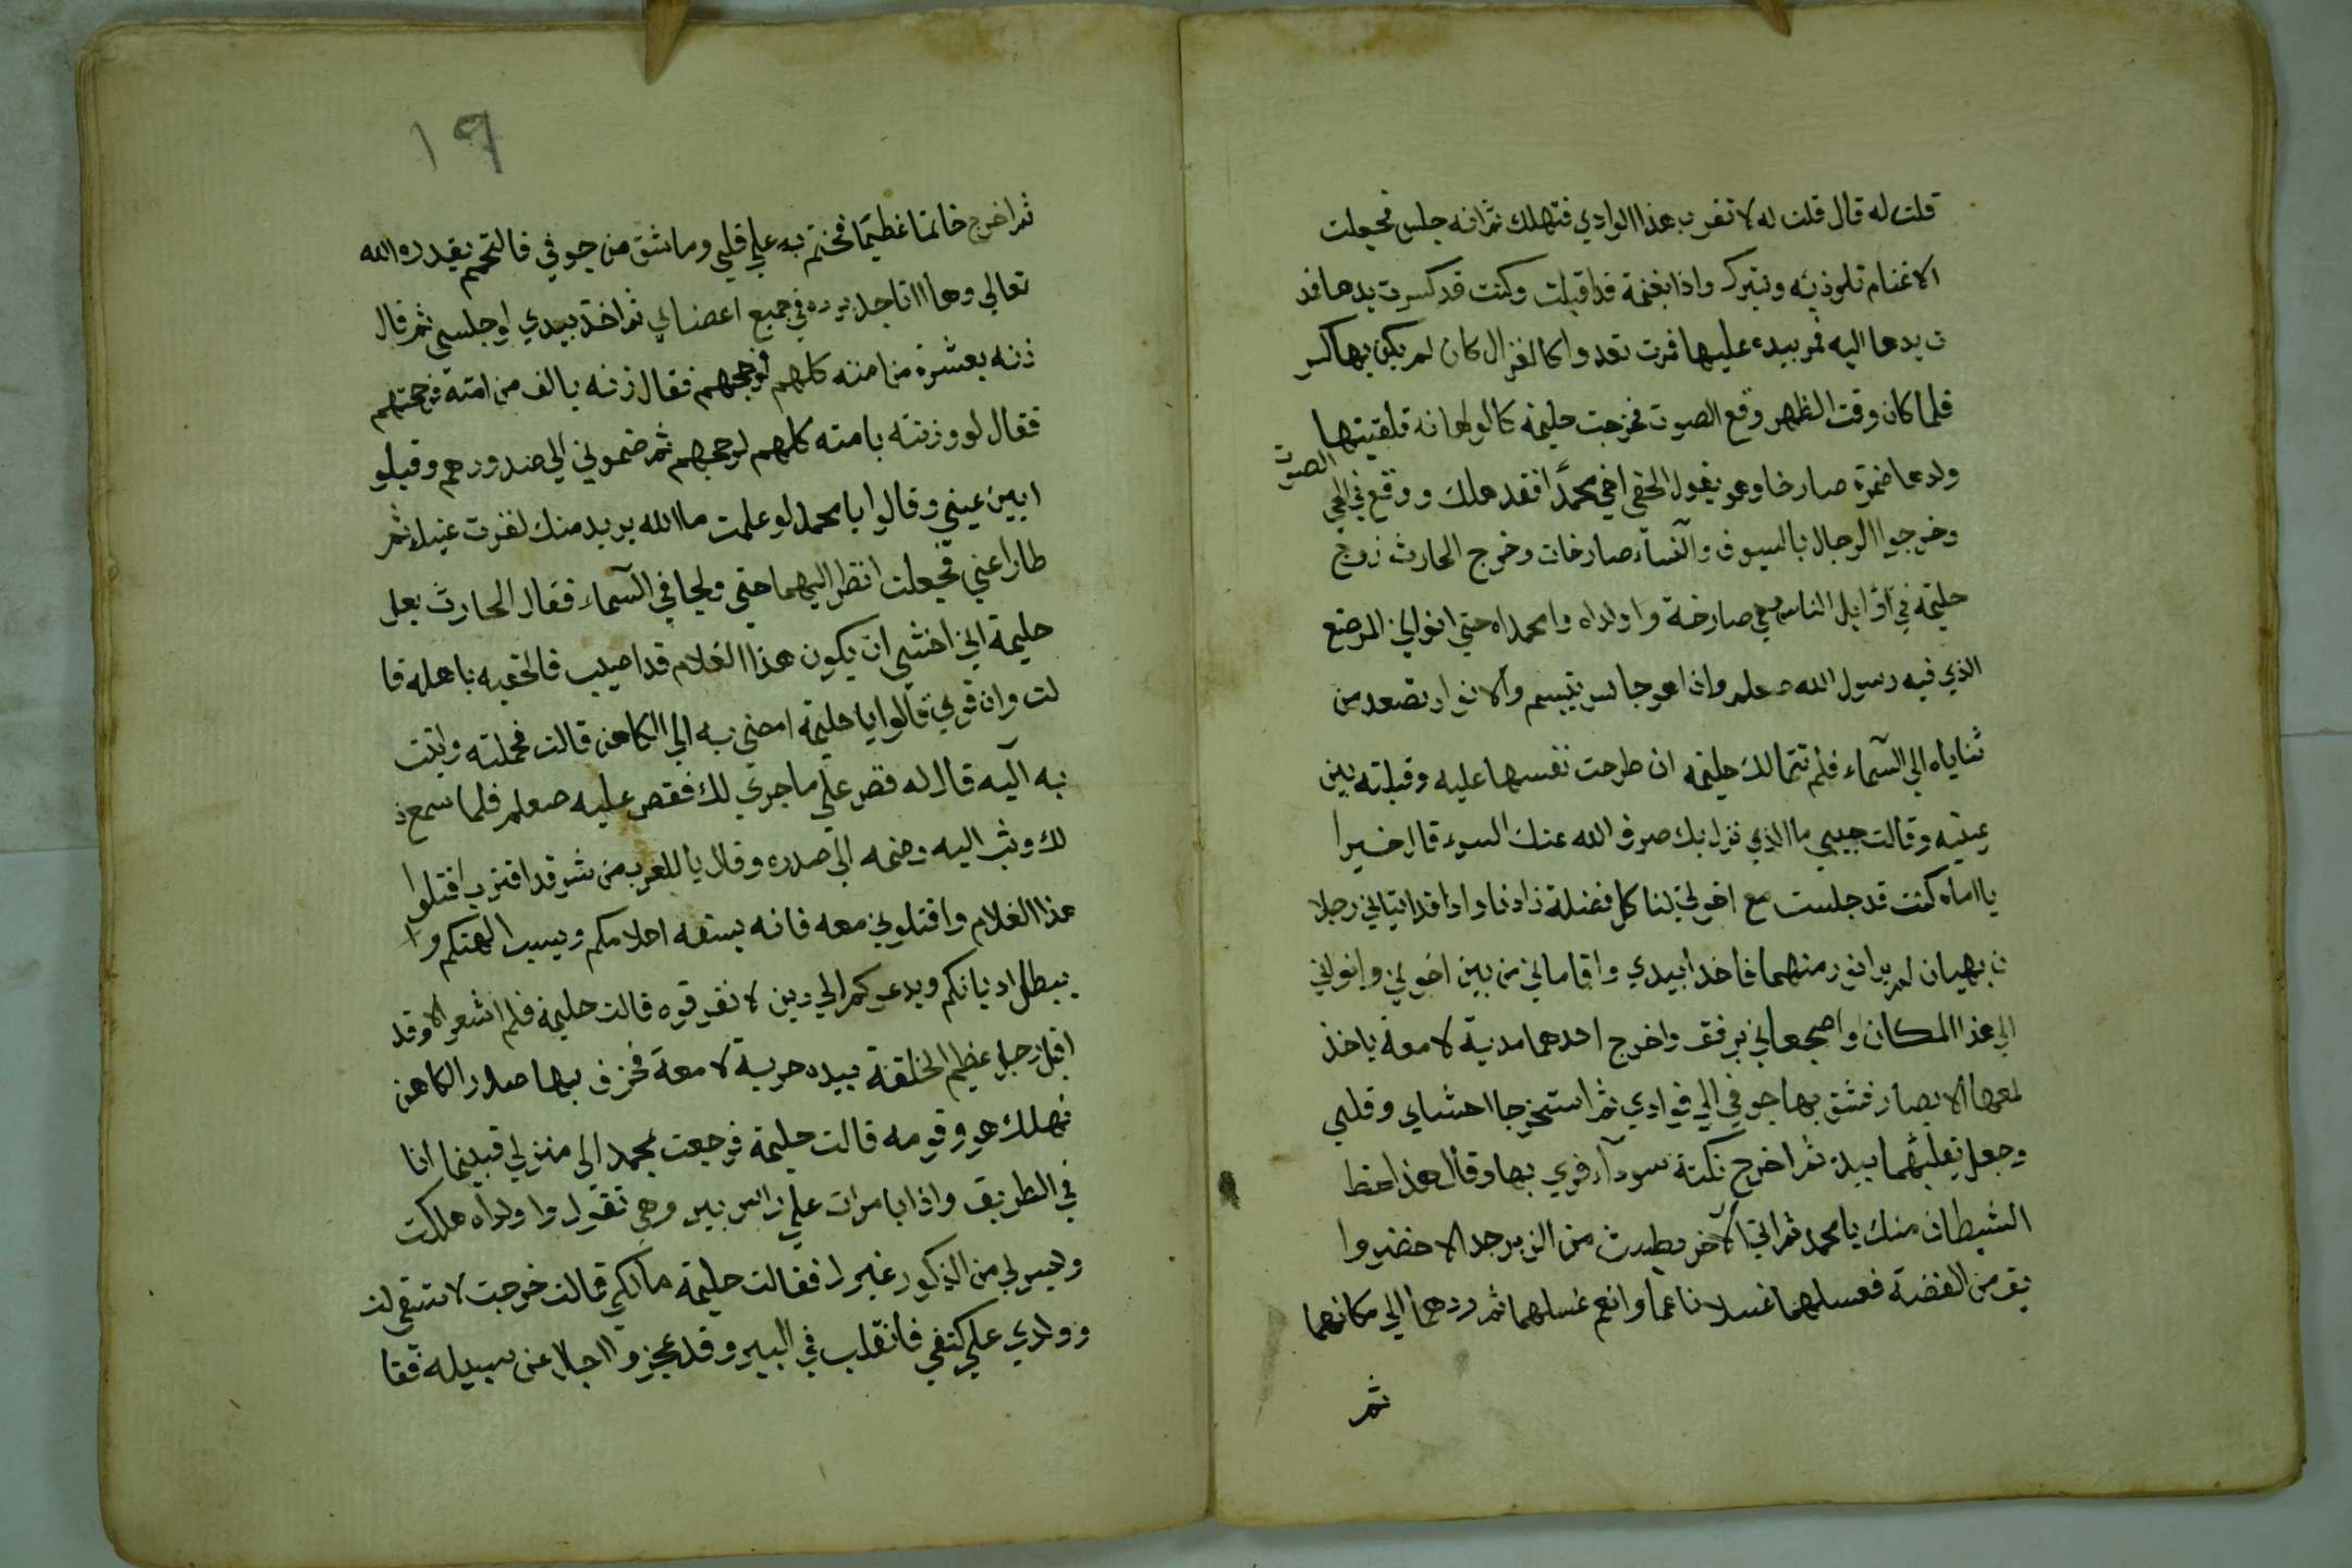 قلت له قال قلت له لا تقرب هذا الوادي فتهلك ثم انه جلس فجعلت
الاغنام تلوذ به وتتبرك واذا بغنمة قد اقبلت وكنت قد كسرت يدها فمد
ت يدها اليه فمر بيده عليها فمرت تعدوا كالغزال كان لم يكن بها كسر
فلما كان وقت الظهر وقع الصوت فخرجت حليمة كالولهانه تلقيتها
الصوت
ولدها ضمرة صارخا وهو يقول الحقي اخي محمدا فقد هلك ووقع في الحي
وخرجوا الرجال بالسيوف والنساء صارخات وخرج الحارث زوج
حليمة في اوايل الناس وهي صارخة وا ولداه وا محمداه حتي اتوا الي المرضع
الذي فيه رسول الله صعلم واذا هو جالس يتبسم والانوار تصعد من
ثناياه الي السماء فلم تتمالك حليمة ان طرحت نفسها عليه وقبلته بين
عينيه وقالت حبيبي ما الذي نزل بك صرف الله عنك السوء قال خيرا
يا اماه كنت قد جلست مع اخوتي لنا كل فضلة زادنا واذا قد اتياني رجلا
ن بهيان لم ير انور منهما فاخذا بيدي واقاماني من بين اخوتي واتوا بي
الي هذا المكان واضجعاني برفق واخرج احدهما مدية لامعة ياخذ
لمعها الابصار فشق بها جوفي الي فوادي ثم استخرجا احشاي وقلبي
وجعل يقلبهما بيده ثم اخرج نكتة سودآء فرمي بها وقال هذا حظ
الشيطان منك يا محمد ثم اتي الآخر بطست من الزبرجد الاخضر وا
بريق من الفضة فغسلهما غسلا ناعما وانعم غسلهما ثم ردهما الي مكانهما
ثم
١٩
ثم اخرج خاتما عظيما فختم به علي قلبي وما شق من جوفي فالتحم بقدره الله
تعالي وها انا اجد برده في جميع اعضاي ثم اخذ بيدي اوجلسني ثم قال
زنه بعشرة من امته كلهم لرجحهم فقال زنه بالف من امته فرجحتهم
فقال لو وزنته بامته كلهم لرجحهم ثم ضموني الي صدورهم وقبلو
ا بين عيني وقالوا يا محمد لو علمت ما الله يريد منك لقرت عينك ثم
طارا عني فجعلت انظر اليهما حتي ولجا في السماء فقال الحارث بعل
حليمة اني اخشي ان يكون هذا الغلام قد اصيب فالحقيه باهله قا
لت وان قومي قالوا يا حليمة امضي به الي الكاهن قالت فحملته واتيت
به اليه قال له قص علي ما جري لك فقص عليه صعلم فلما سمع ذ
لك وثب اليه وضمه الي صدره وقال يا للعرب من شر قد اقترب اقتلوا
هذا الغلام واقتلوني معه فانه يسفه احلامكم ويسب الهتكم وا
يبطل اديانكم ويدعوكم الي دين لا تعرفوه قالت حليمة فلم اشعر الا وقد
اقبل رجل عظيم الخلقة بيده حربة لامعة فخرق بها صدر الكاهن
فهلك هو وقومه قالت حليمة فرجعت بمحمد الي منزلي فبينما انا
في الطريق واذا بامرات علي راس بير وهي تقول وا ولداه هلكت
وليس لي من الذكور غيرك فقالت حليمة مالكي قالت خرجت لاستقي لن
وولدي علي كتفي فانقلب في البير وقد عجزوا الرجال عن سبيله فقا